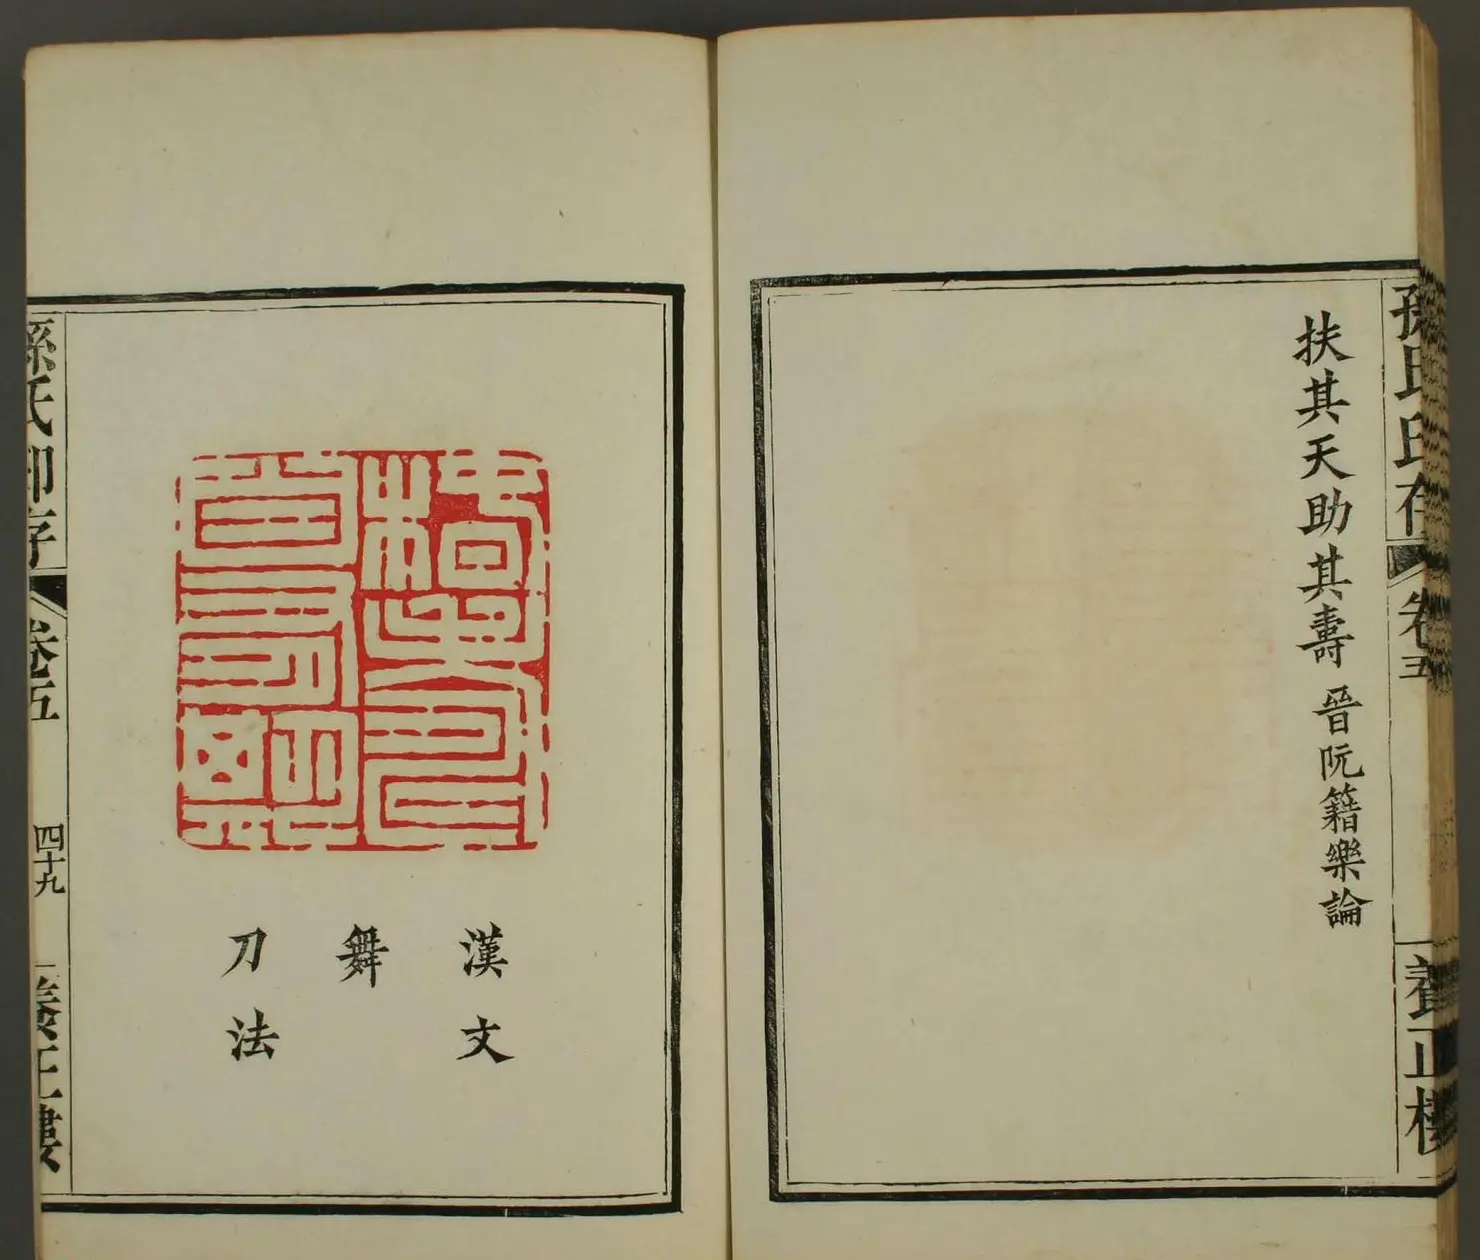 孫氏印存
卷五
養正樓
扶其天助其壽 晉阮籍樂論
漢文
舞
刀法
孫氏印存
卷五
四十九
養正樓